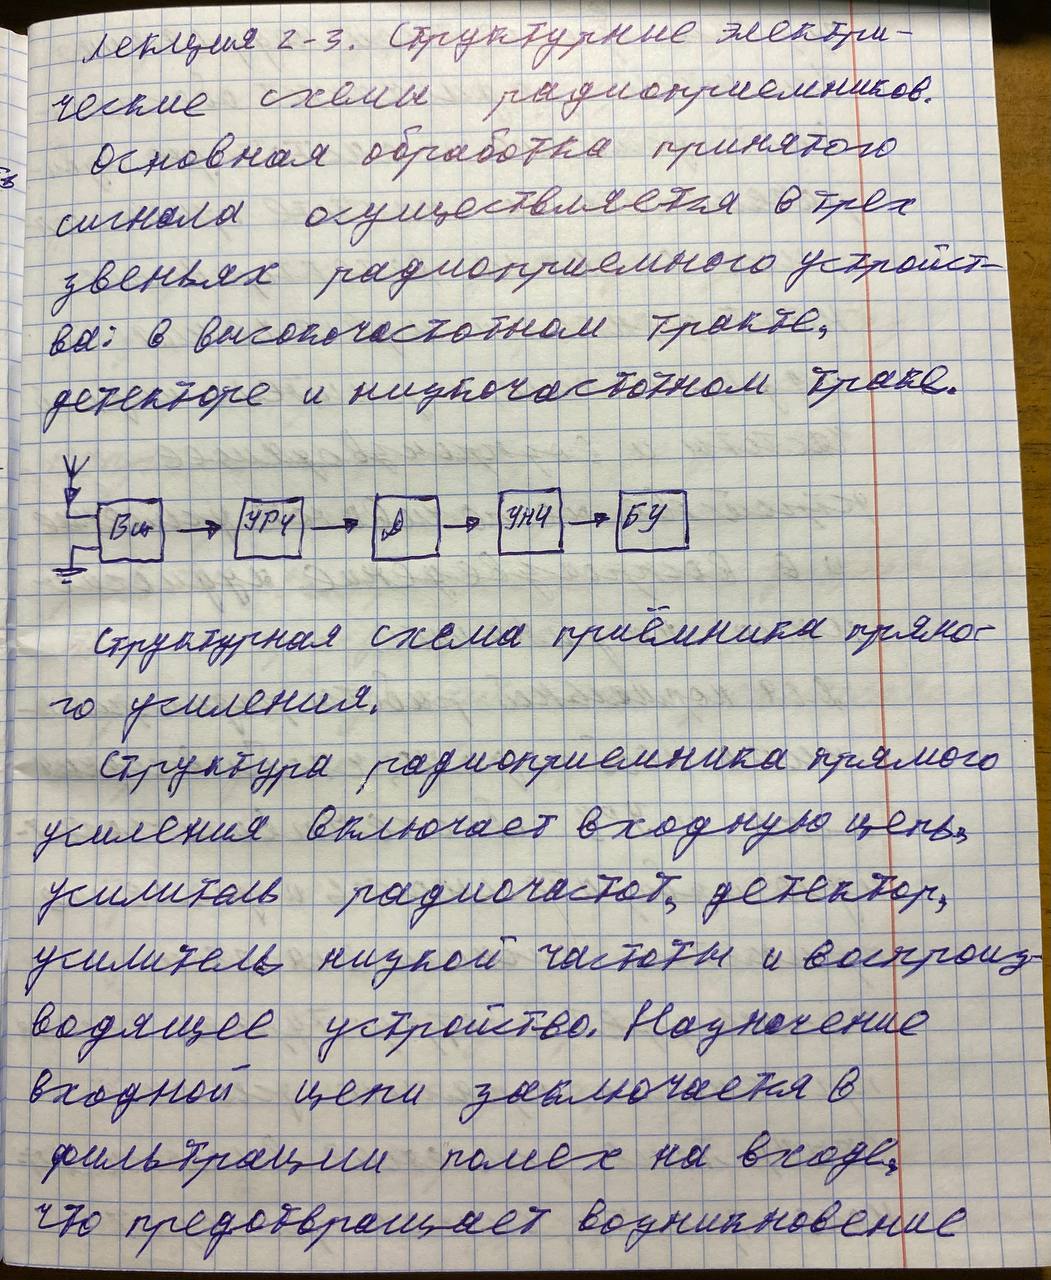 Лекция 2-3. Структурные электри-
ческие схемы радиоприемников.
Основная обработка принятого
сигнала осуществляется в трех
звеньях радиоприемного устройст-
ва: в высокочастотном тракте,
детекторе и низкочастотном траке.
УРЧ Д УНЧ БУ
Структурная схема приёмника прямо-
го усиления.
Структура радиоприемника прямого
усиления включает входную цепь,
усилитель радиочастот, детектор,
усилитель низкой частоты и воспроиз-
водящее устройство. Назначение
входной цепи заключается в
фильтрации помех на входе,
что предотвращает возникновение